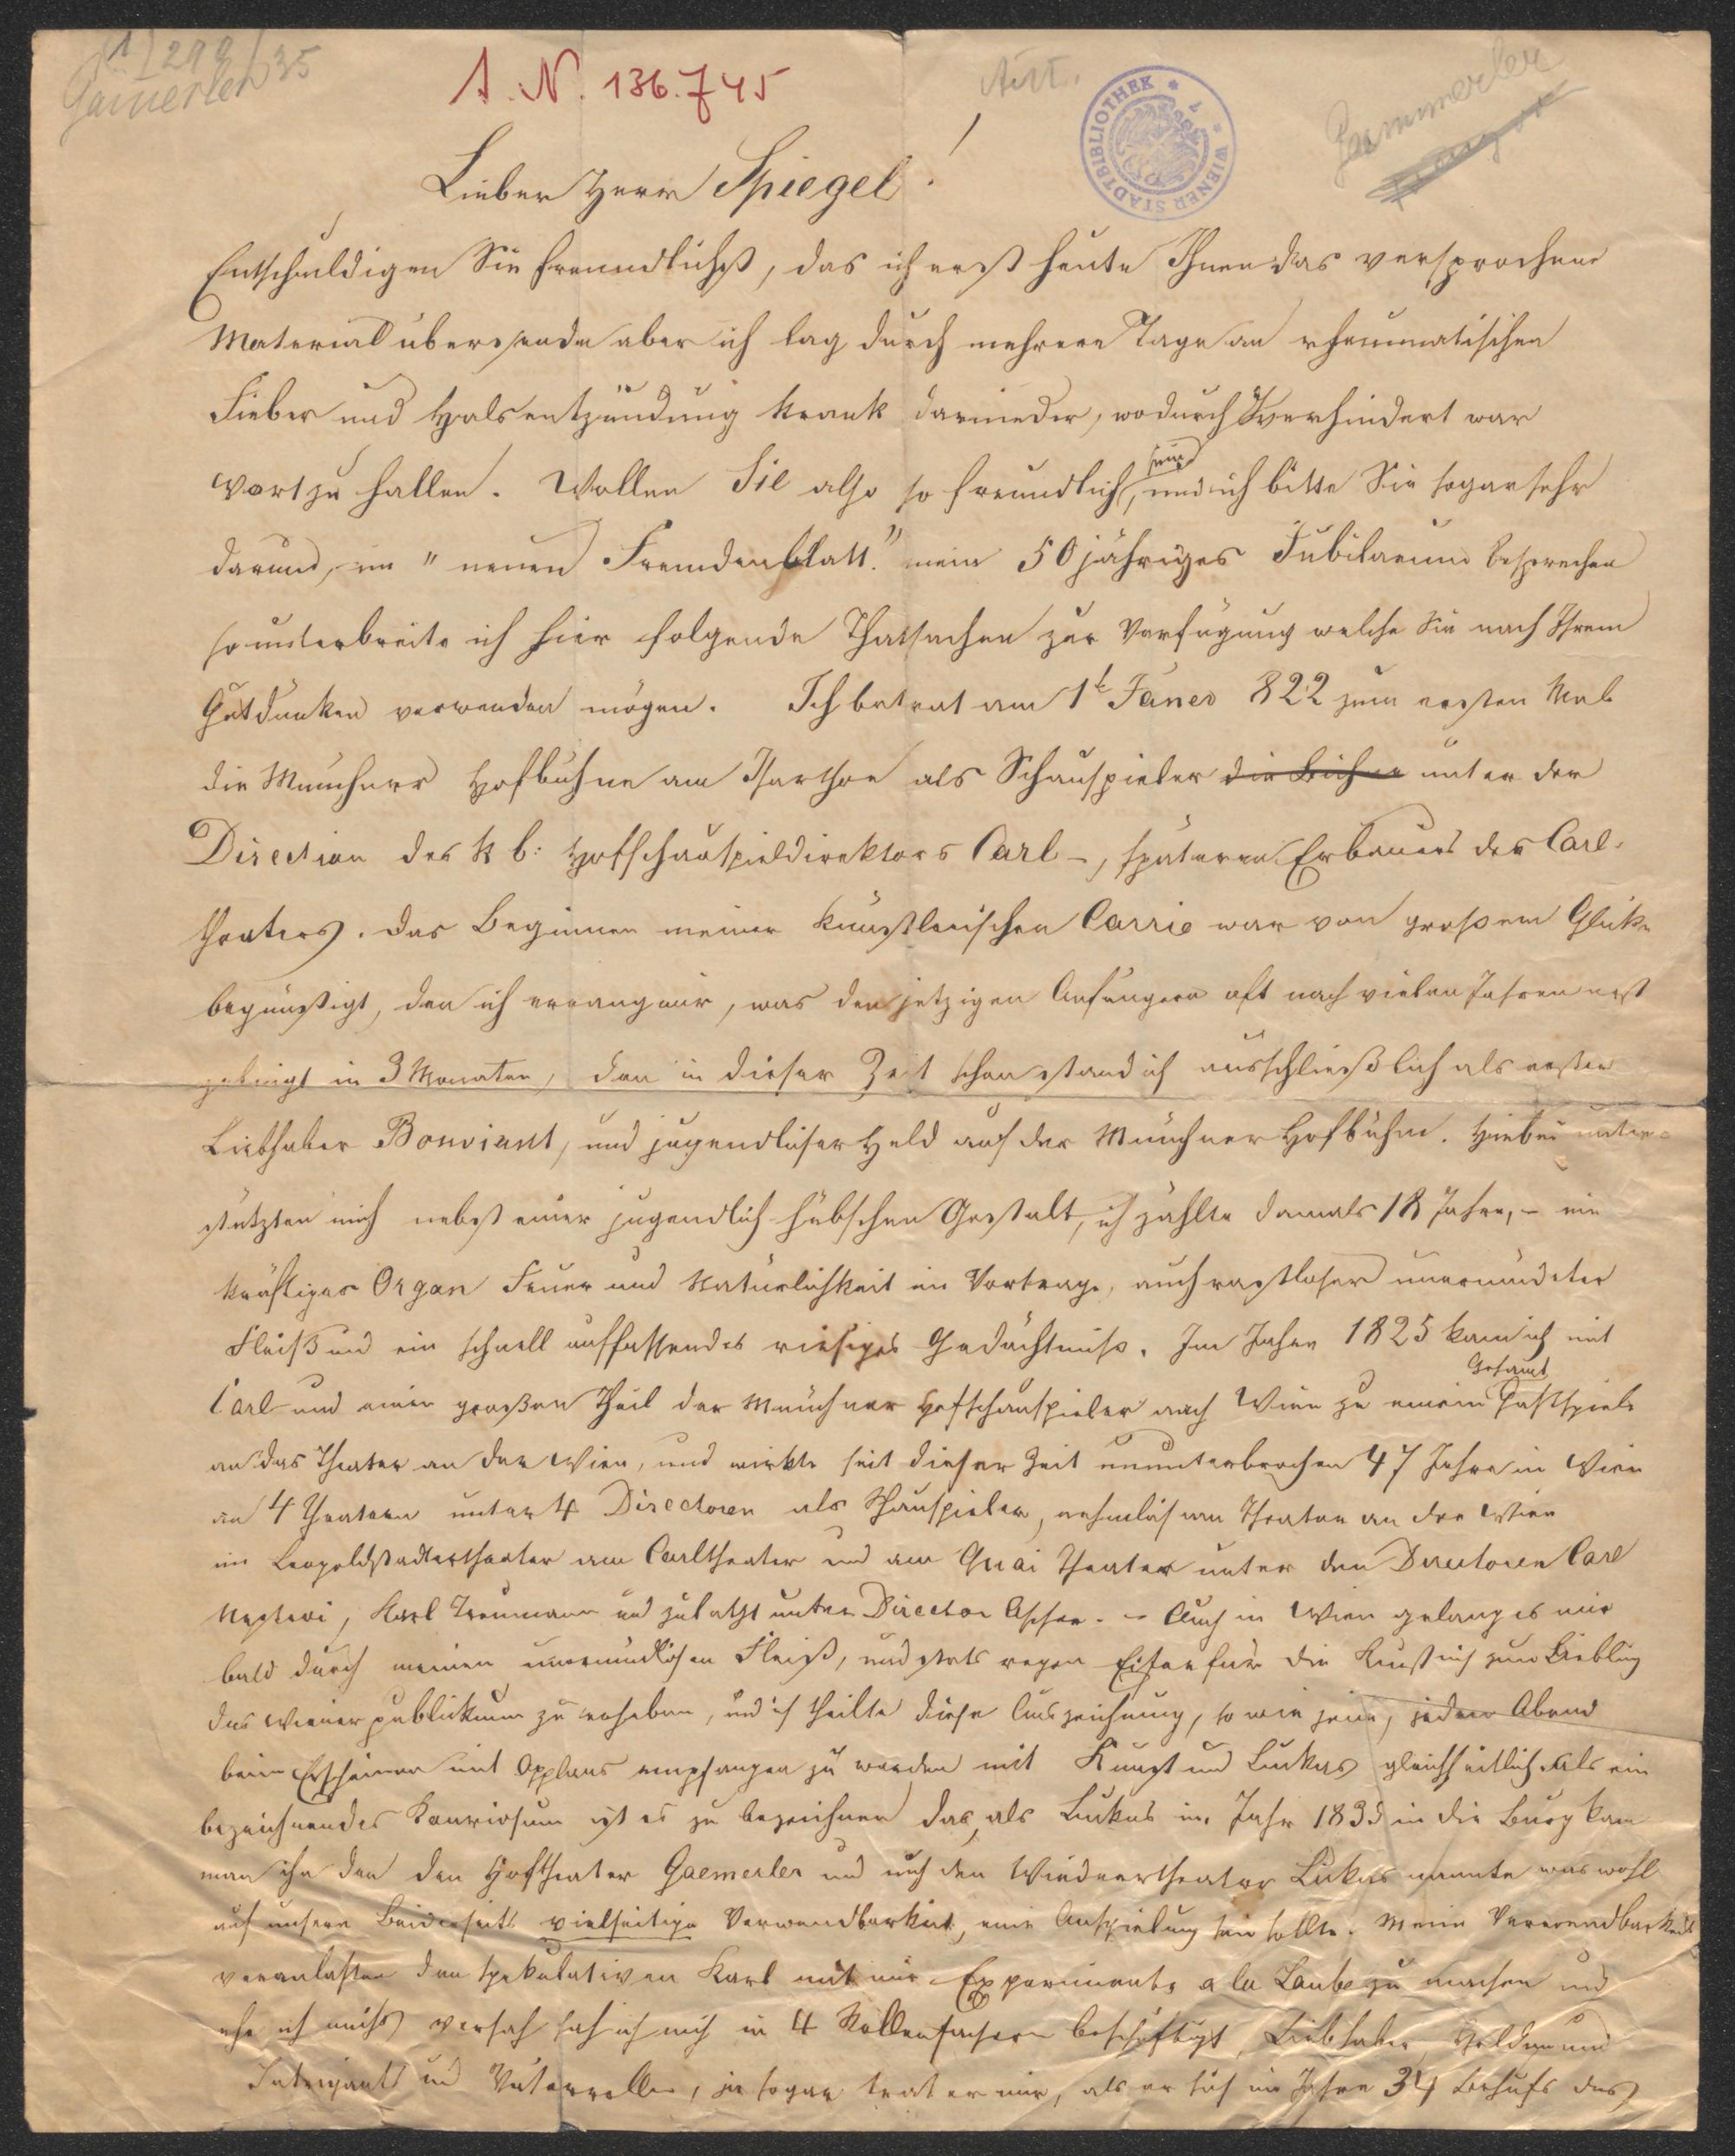 A 299/35
Gämerler
I. N. 136.745
Aut.
Gämmerler
WIENER STADTBIBLIOTHEK
Lieber Herr Spiegel!
Entschuldigen Sie freundlichst, das ich erst heute Ihnen das versprochene
Material übersende aber ich lag durch mehrere Tage an rheumatischen
Fieber und Halsentzündung krank darnieder, wodurch ich verhindert war
Wort zu halten. Wollen Sie also so freundlich sein, und ich bitte Sie sogar sehr
darum, im "neuen Fremdenblatt." mein 50jähriges Jubilaeum besprechen
so unterbreite ich hier folgende Thatsachen zur Verfügung welche Sie nach Ihrem
Gutdünken verwenden mögen. Ich betrat am 1t Jäner 822 zum ersten Mal
die Münchner Hofbühne am Isarthor als Schauspieler die Bühne unter der
Direction des k b: Hofschauspieldirektors Carl –, späteren Erbauers des Carl-
theaters. Das Beginnen meiner künstlerischen Carrie war von großem Glück
begünstigt, den ich errang mir, was den jetzigen Anfängern oft nach vielen Jahren erst
gelingt in 3 Monaten, den in dieser Zeit schon stand ich ausschließlich als erster
Liebhaber Bonviant, und jugendlicher Held auf der Münchner Hofbühne. Hiebei unter-
stützten mich nebst einer jugendlich hübschen Gestalt, ich zählte damals 18 Jahre, – ein
kräftiges Organ Feuer und Natürlichkeit im Vortrage, auch rastloser unermüdeter
Fleiß und ein schnell auffassendes riesiges Gedächtniß. Im Jahre 1825 kam ich mit
Carl und einen großen Theil der Münchner Hofschauspieler nach Wien zu einem Gesamt Gastspiele
an das Theater an der Wien, und wirkte seit dieser Zeit ununterbrochen 47 Jahre in Wien
an 4 Theatern unter 4 Directoren als Schauspieler, nehmlich am Theater an der Wien
im Leopoldstadtertheater am Carltheater und am Quai Theater unter den Directoren Carl
Nestroi, Karl Treumann und zuletzt unter Director Ascher. – Auch in Wien gelang es mir
bald durch meinen unermüdlichen Fleiß, und stets regen Eifer für die Kunst mich zum Liebling
des Wiener publickum zu erheben, und ich theilte diese Auszeichnung, so wie jene, jeden Abend
beim Erscheinen mit Applaus empfangen zu werden mit Kunst und Lukas gleichzeitlich. Als ein
bezeichnendes Kouriosum ist es zu bezeichnen das, als Lukas im Jahr 1835 in die Burg kam
man ihn den den Hoftheater Gaemerler und mich den Wiednertheater Lukas nannte was wohl
auf unsere Beiderseits vielseitige Verwendbarkeit, eine Anspielung sein sollte. Meine Verwendbarkeit
veranlaßte den spekulativen Karl mit mir Experimente a la Laube zu machen und
ehe ich michs versah sah ich mich in 4 Rollenfächern beschäftigt, Liebhaber, Helden und
Intriguants und Väterrollen, ja sogar trat er mir, als er sich im Jahre 34 behufs des